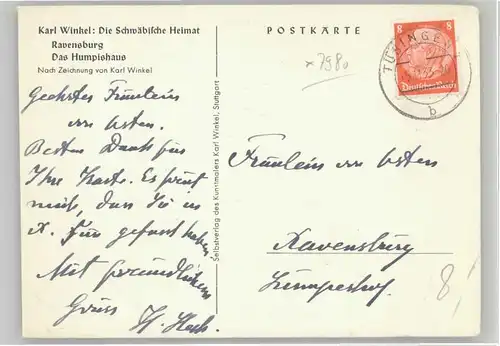 Karl Winkel: Die Schwäbische Heimat
Ravensburg
Das Humpishaus
Nach Zeichnung von Karl Winkel
POSTKARTE
x 7980
8 8
TÜBINGEN
b
Deutsches Reich
Geehrtes Fräulein
von Osten.
Besten Dank für
Ihre Karte. Es freut
mich, dass Sie in
gefunden haben.
Mit freundlichem
Gruss
H.
Selbstverlag des Kunstmalers Karl Winkel, Stuttgart
Fräulein von Osten
Ravensburg
8,